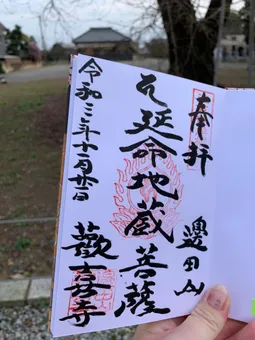 奉拝
邊田山
延命地蔵菩薩
歡喜寺
令和三年十二月廿日